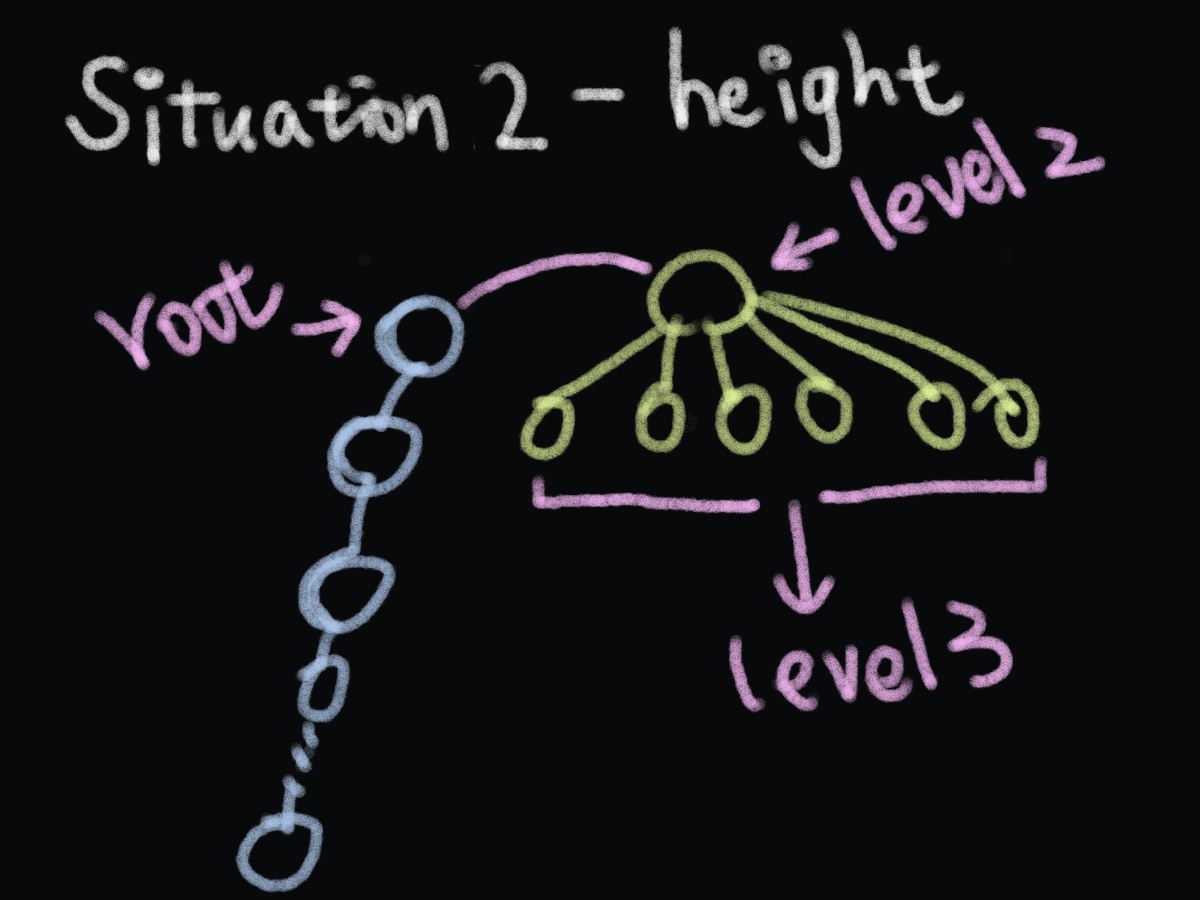 Situation 2 - height
level 2
root
level 3